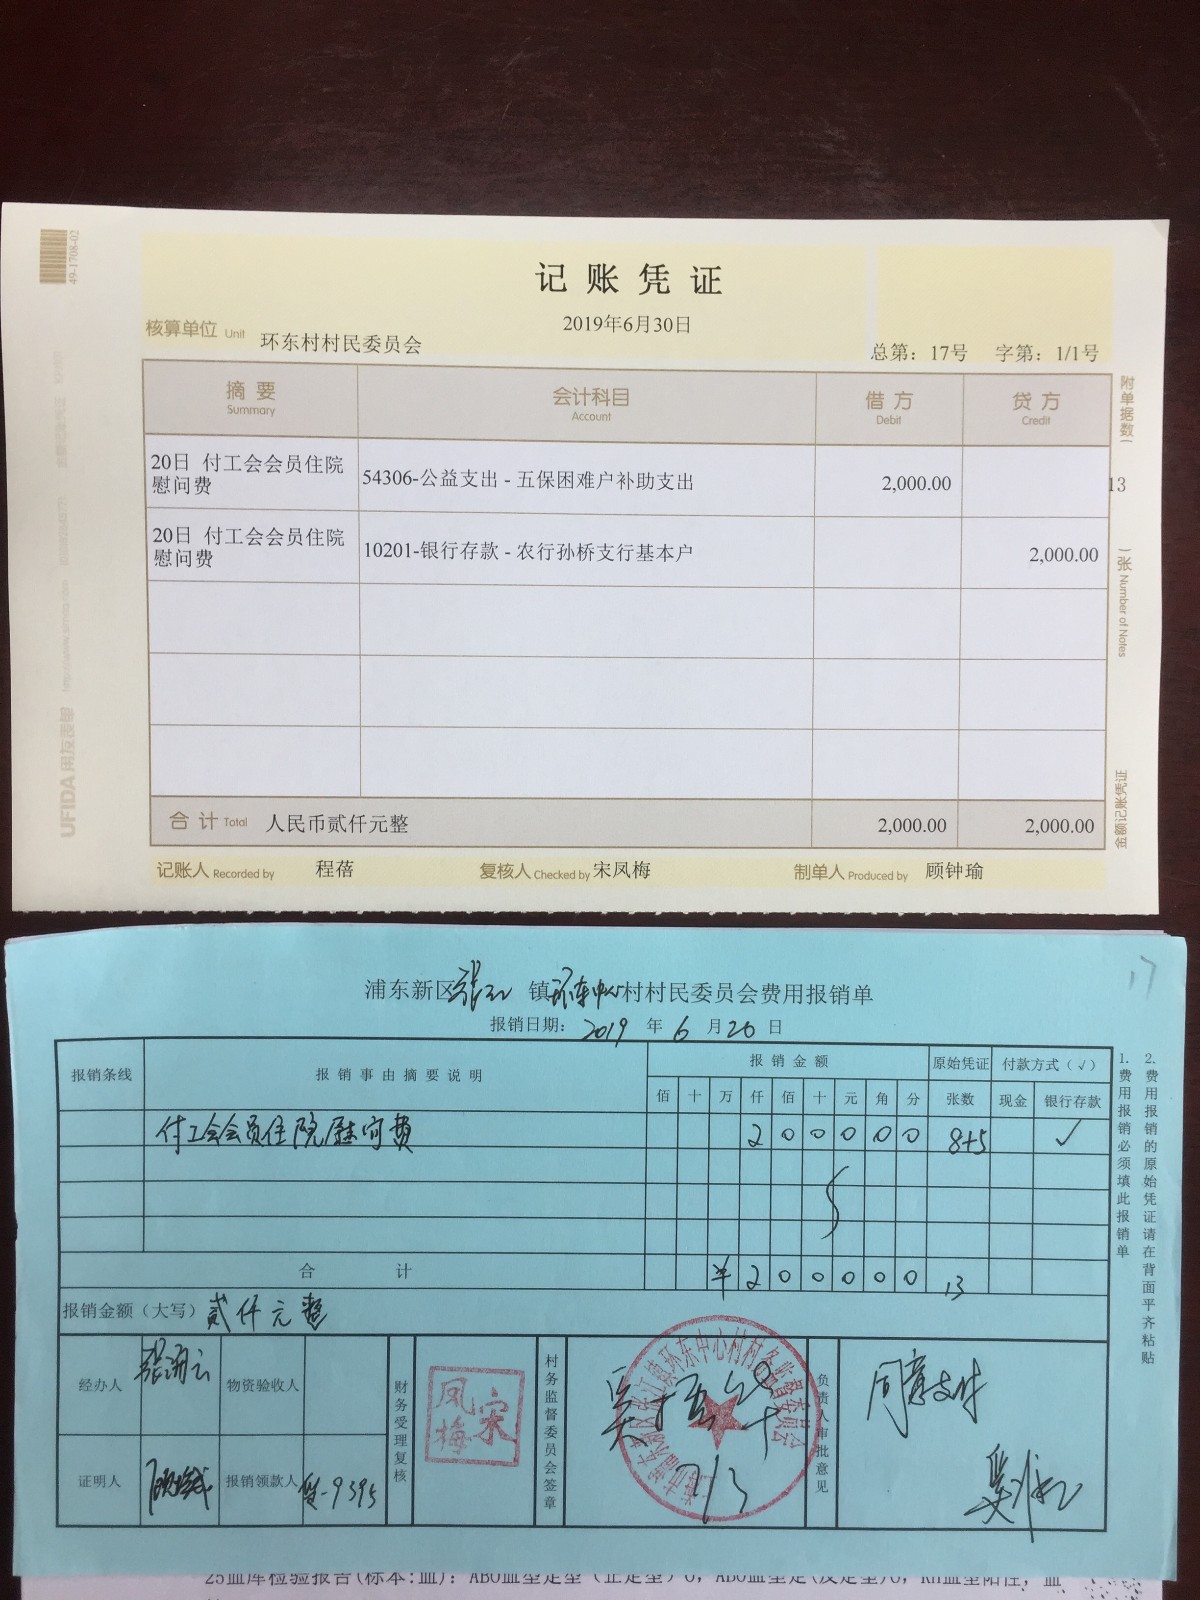 49-1708-02
记账凭证
2019年6月30日
核算单位 Unit 环东村村民委员会
总第：17号 字第：1/1号
摘要 会计科目 借方 贷方
Summary Account Debit Credit
20日 付工会会员住院慰问费 54306-公益支出 - 五保困难户补助支出 2,000.00
20日 付工会会员住院慰问费 10201-银行存款 - 农行孙桥支行基本户 2,000.00
合计 Total 人民币贰仟元整 2,000.00 2,000.00
记账人 Recorded by 程蓓 复核人 Checked by 宋凤梅 制单人 Produced by 顾钟瑜
附单据数(
13
张) Number of Notes
金额记账凭证
UFIDA 用友表单
17
浦东新区张江镇环东中心村村民委员会费用报销单
报销日期：2019年6月20日
报销条线 报销事由摘要说明 报销金额 原始凭证 付款方式（√）
佰 十 万 仟 佰 十 元 角 分 张数 现金 银行存款
付工会会员住院慰问费 2 0 0 0 0 0 8+5 √
合计 ¥ 2 0 0 0 0 0 13
报销金额（大写）贰仟元整
经办人 物资验收人
证明人 报销领款人
财务受理复核
宋凤梅
村务监督委员会签章
7/3
负责人审批意见
同意支付
1.费用报销必须填此报销单
2.费用报销的原始凭证请在背面平齐粘贴
25血库检验报告(标本:血)：ABO血型定型（正定型）O, ABO血型定(反定型)O, RH血型阳性, 血